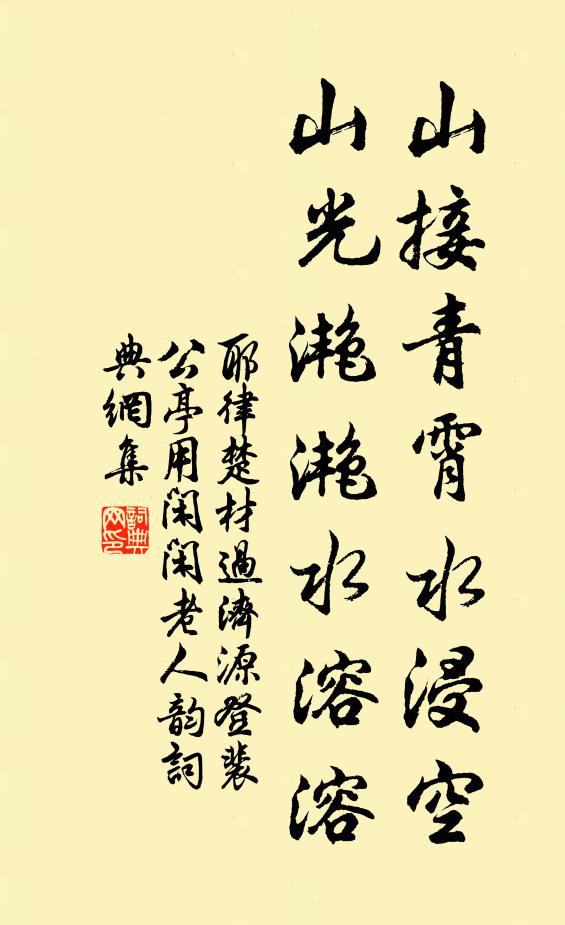 山接青霄水浸空
山光滟滟水溶溶
耶律楚材過濟源登裴
公亭用閑閑老人韵詞
典網集
詞典网印